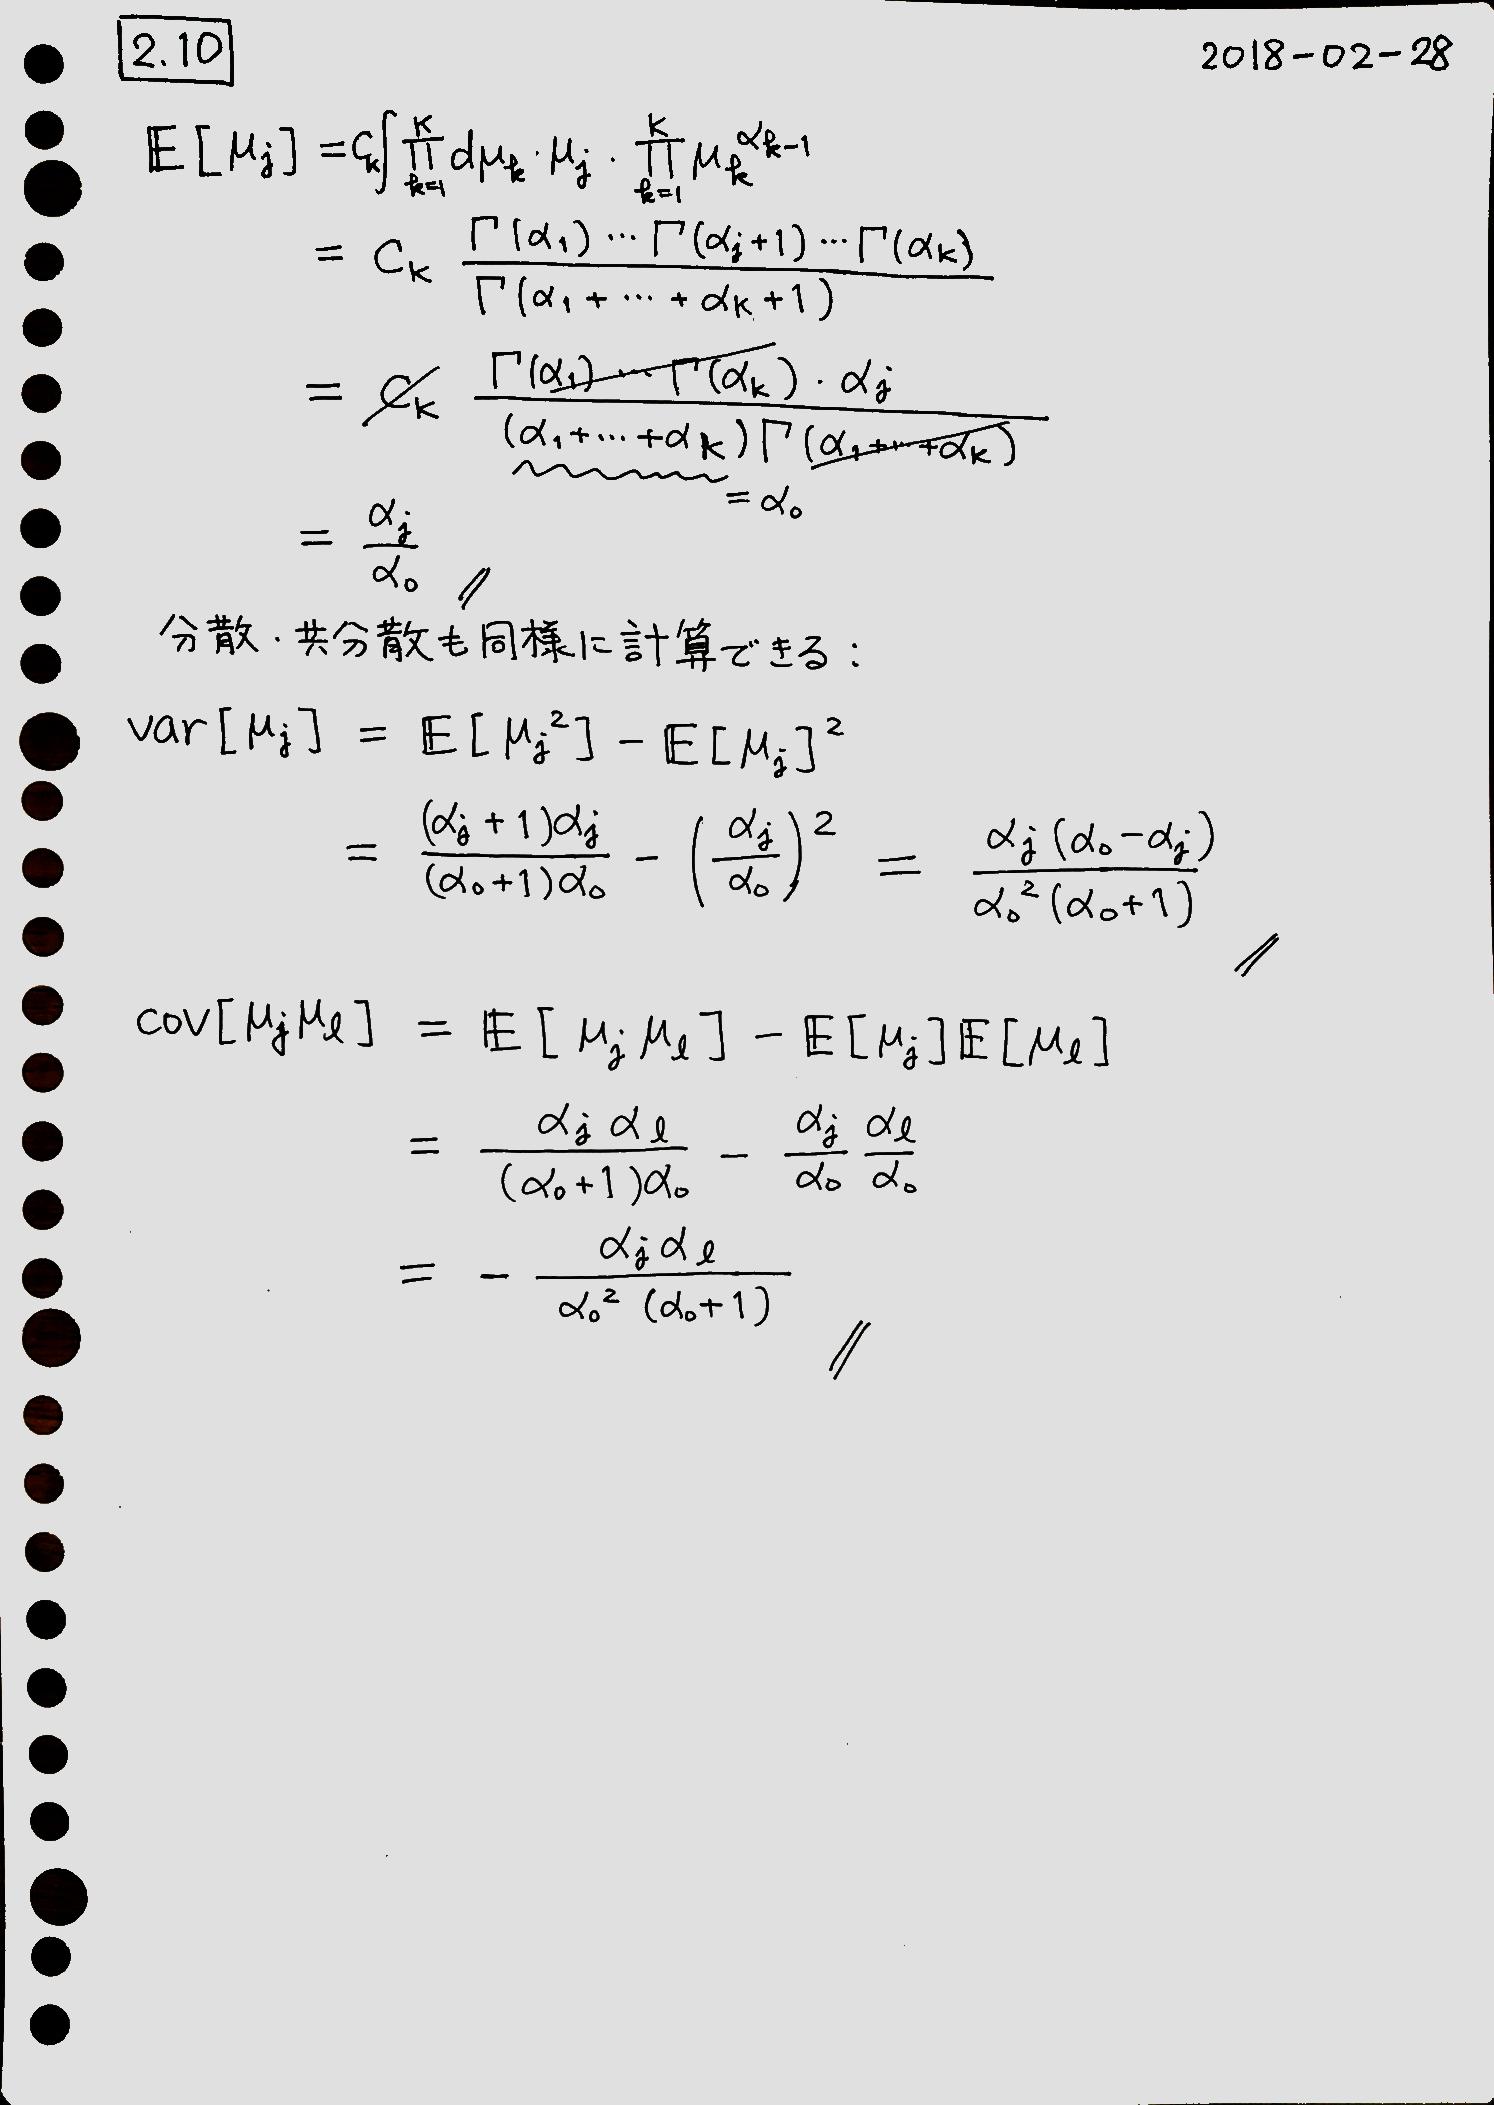 2.10 2018-02-28
𝔼[μ_j] = C_K ∫ ∏_{k=1}^{K} dμ_k · μ_j · ∏_{k=1}^{K} μ_k^{α_k-1}
= C_K \frac{Γ(α_1) ⋯ Γ(α_j+1) ⋯ Γ(α_K)}{Γ(α_1 + ⋯ + α_K + 1)}
= C_K \frac{Γ(α_1) ⋯ Γ(α_K) · α_j}{(α_1 + ⋯ + α_K) Γ(α_1 + ⋯ + α_K)}
= α_0
= \frac{α_j}{α_0} //
分散・共分散も同様に計算できる:
var[μ_j] = 𝔼[μ_j^2] - 𝔼[μ_j]^2
= \frac{(α_j+1)α_j}{(α_0+1)α_0} - (\frac{α_j}{α_0})^2 = \frac{α_j(α_0-α_j)}{α_0^2(α_0+1)} //
cov[μ_j μ_l] = 𝔼[μ_j μ_l] - 𝔼[μ_j]𝔼[μ_l]
= \frac{α_j α_l}{(α_0+1)α_0} - \frac{α_j}{α_0} \frac{α_l}{α_0}
= - \frac{α_j α_l}{α_0^2 (α_0+1)} //